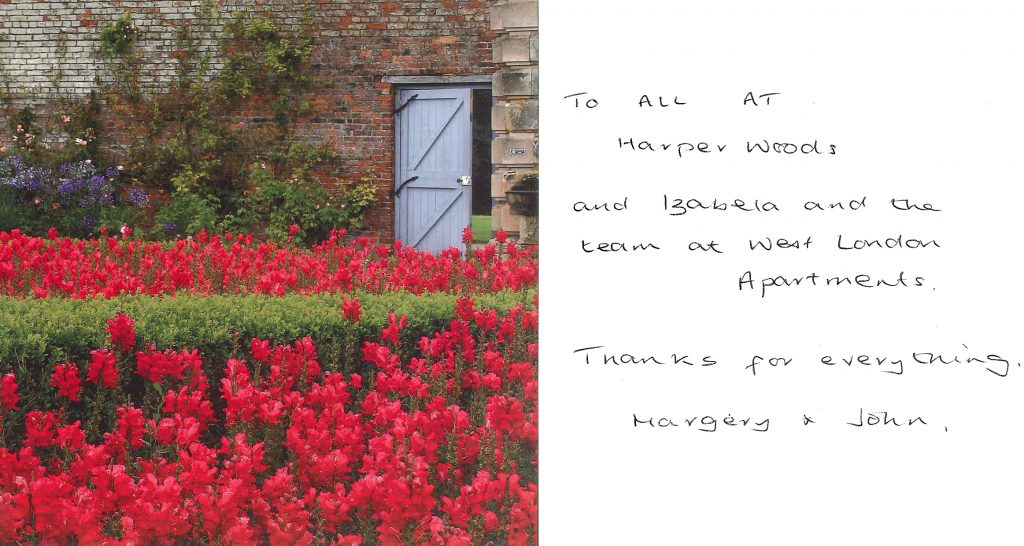 TO ALL AT
Harper Woods
and Izabela and the
team at West London
Apartments.
Thanks for everything.
Margery & John.